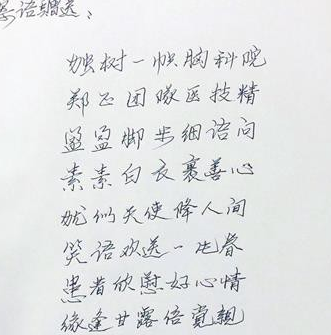 语赠送：
独树一帜脑科院
郑正团队医技精
盈盈脚步细语问
素素白衣裹善心
犹似天使降人间
笑语欢送一屯春
患者欣慰好心情
缘逢甘露倍赏亲